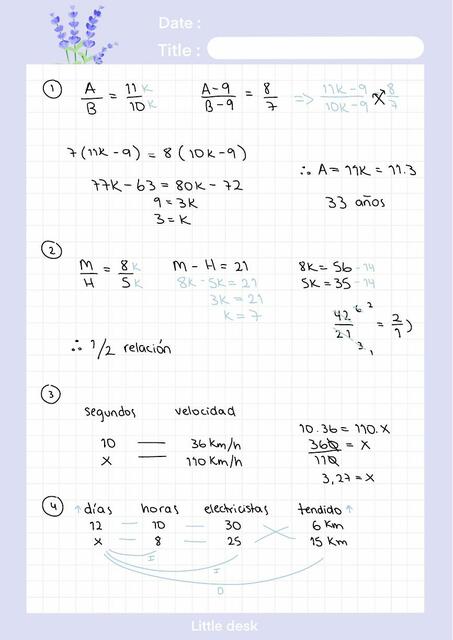 Date :
Title :
1 A/B = 11K/10K   A-9/B-9 = 8/7 => 11K-9/10K-9 X 8/7
7(11K-9) = 8(10K-9)
77K-63 = 80K-72   ∴ A = 11K = 11.3
9 = 3K   33 años
3 = K
2 M/H = 8K/5K   M-H = 21   8K = 56 -14
8K-5K = 21   5K = 35 -14
3K = 21
K = 7   42/21 = 2/1
∴ 1/2 relación
3
segundos   velocidad
10.36 = 110.x
10 — 36 Km/h   360/110 = x
x — 110 Km/h
3,27 = x
4 ↑ días   horas   electricistas   tendido ↑
12   10   30   6 Km
x   8   25   15 Km
I
I
D
Little desk